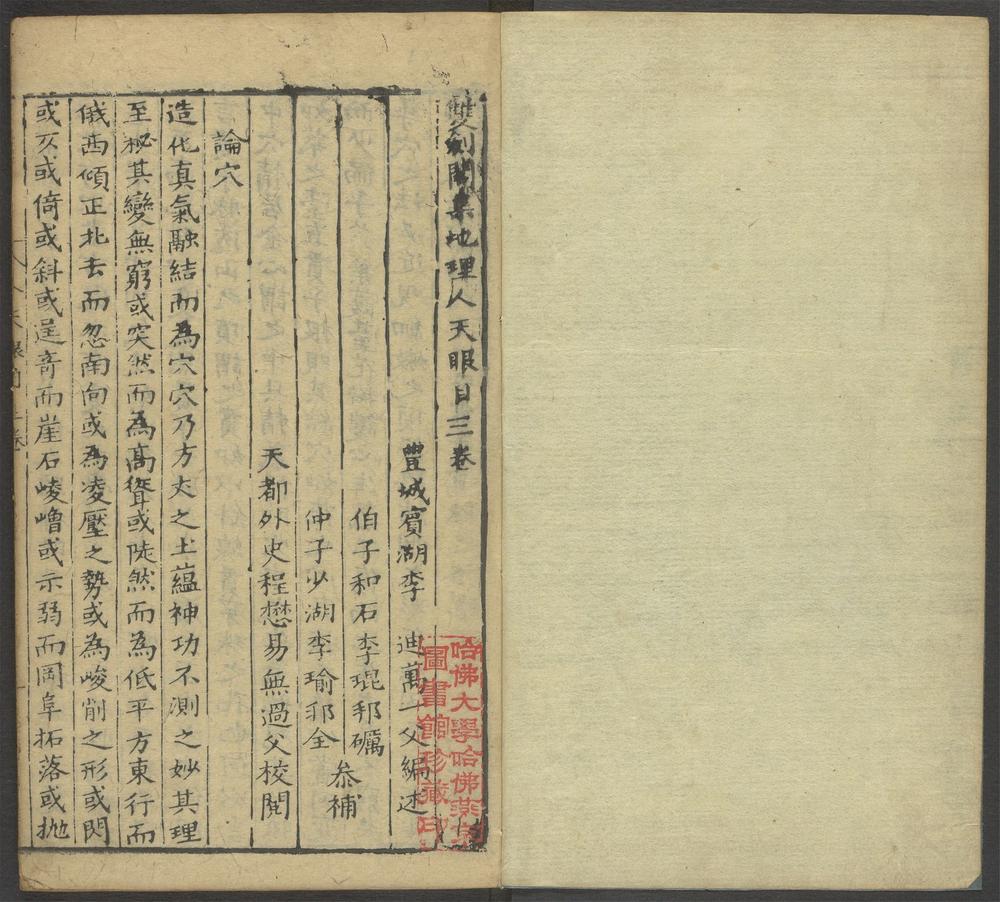 雙劍閣集地理人天眼目三卷
豐城賓湖李 迪萬一父編述
伯子和石李琨邦礪
仲子少湖李瑜邦全
叅補
天都外史程懋易無過父校閱
論穴
造化真氣融結而為穴穴乃方丈之土蘊神功不測之妙其理
至秘其變無窮或突然而為高聳或陡然而為低平方東行而
俄西傾正北去而忽南向或為凌壓之勢或為峻削之形或閃
或仄或倚或斜或逞奇而崖石崚嶒或示弱而岡阜拓落或拋
哈佛大學哈佛燕京
圖書館珍藏印